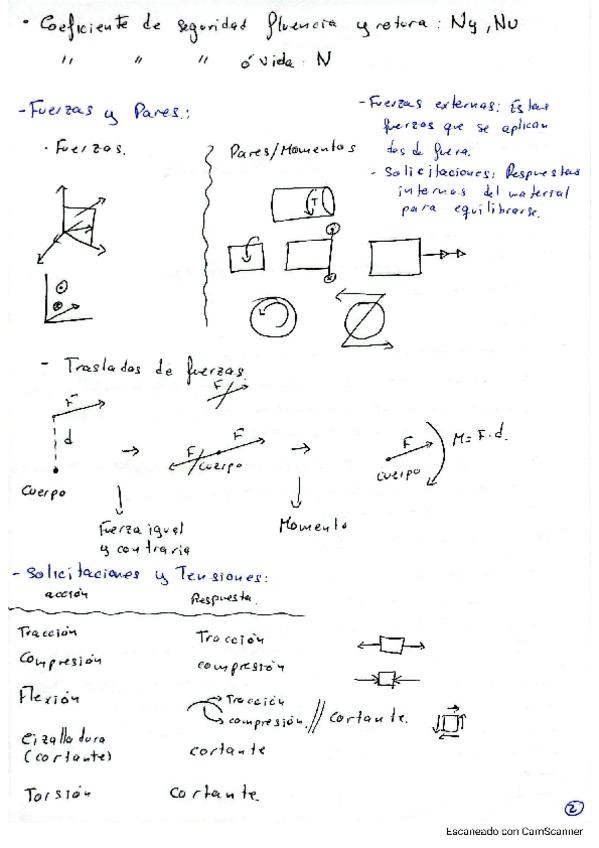 • Coeficiente de seguridad fluencia y rotura: Ny, Nu
" " " ó vida: N
- Fuerzas y Pares:
• Fuerzas.
Pares/Momentos
- Fuerzas externas: Estas
fuerzas que se aplican
das de fuera.
- Solicitaciones: Respuestas
internas del material
para equilibrarse.
T
- Traslados de fuerzas.
F
d
Cuerpo
F
F
F
Cuerpo
F
Cuerpo
M = F·d.
Fuerza igual
y contraria
Momento
- Solicitaciones y Tensiones:
acción Respuesta.
Tracción Tracción
Compresión compresión
Flexión Tracción
compresión. // Cortante.
Cizalladura
(cortante) cortante
Torsión Cortante.
2
Escaneado con CamScanner